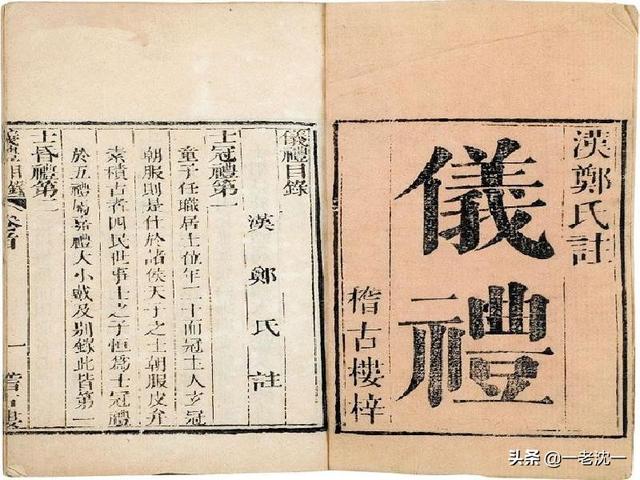 漢鄭氏註
儀禮
稽古樓梓
儀禮目錄
漢鄭氏註
士冠禮第一
童子任職居士位年二十而冠主人玄冠
朝服則是仕於諸侯天子之士朝服皮弁
素積古者四民世事士之子恒為士冠禮
於五禮屬嘉禮大小戴及別錄此皆第一
士昏禮第二
儀禮目錄 卷首 一
头条 @一老沈一